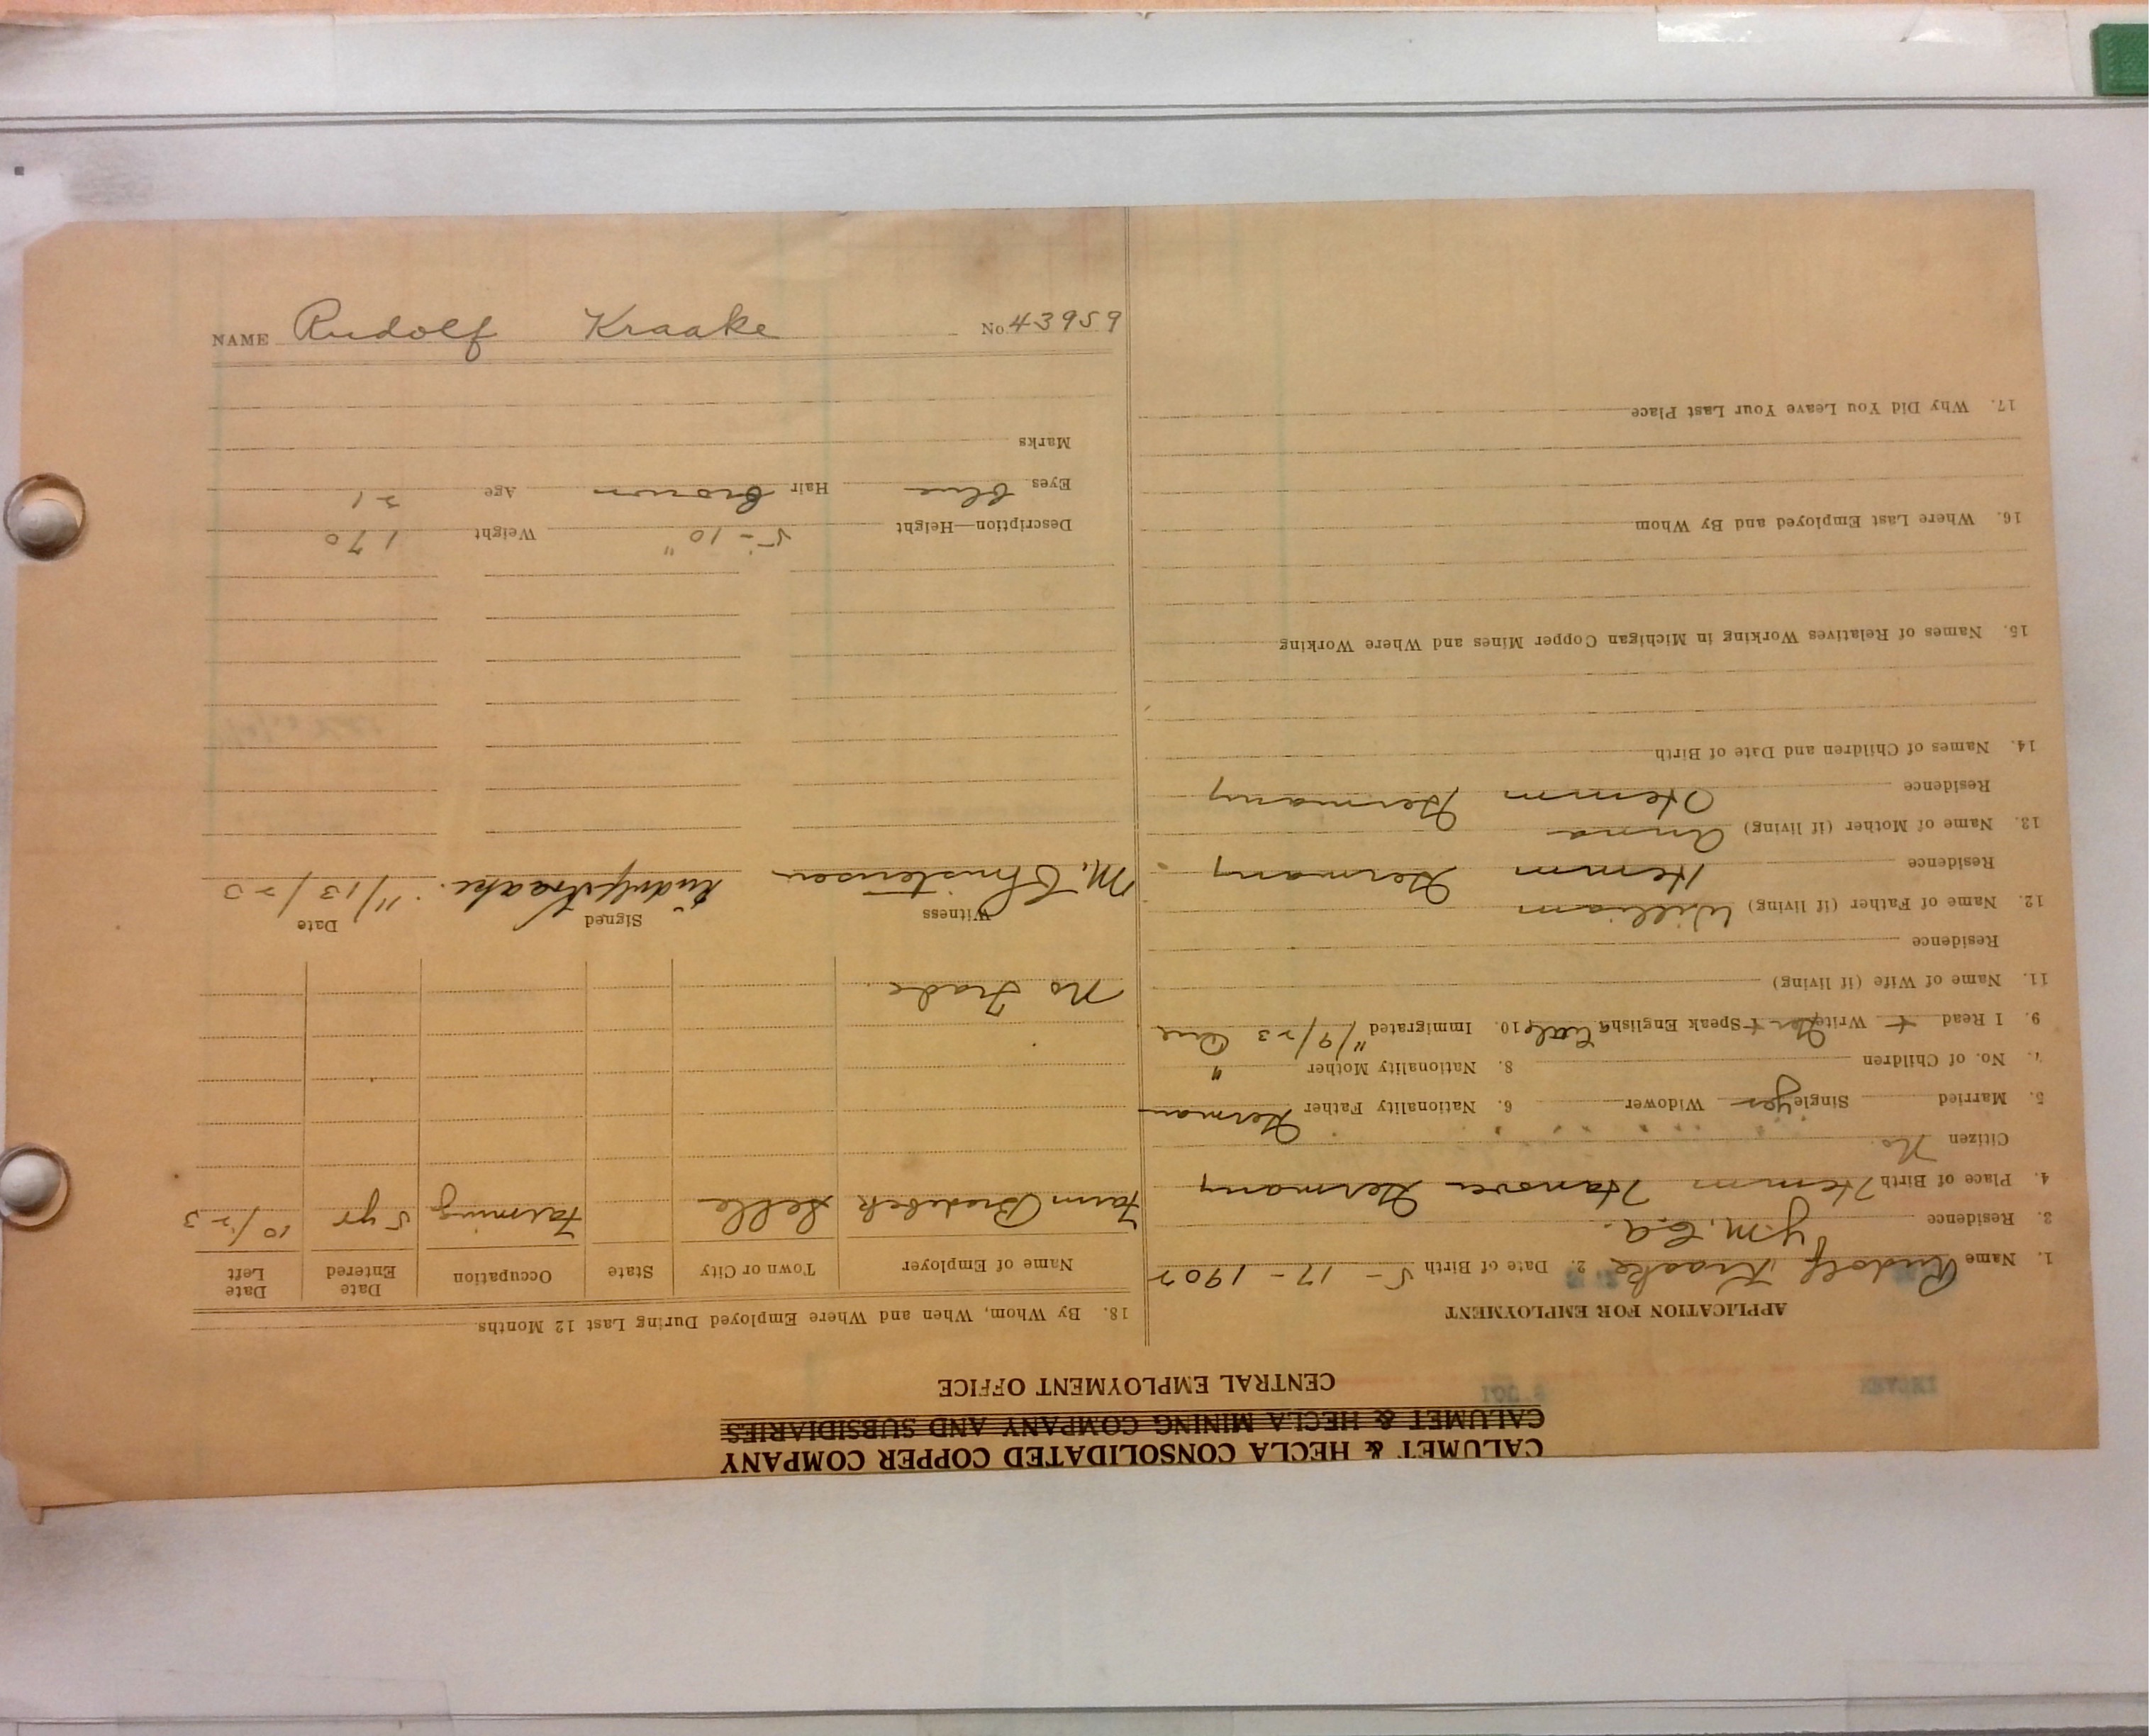 CALUMET & HECLA CONSOLIDATED COPPER COMPANY
CALUMET & HECLA MINING COMPANY AND SUBSIDIARIES
CENTRAL EMPLOYMENT OFFICE
APPLICATION FOR EMPLOYMENT
1. Name Rudolf Kraake 2. Date of Birth 5-17-1902
3. Residence Y.M.C.A.
4. Place of Birth Hemm Hanover Germany
Citizen No.
5. Married Single yes Widower 6. Nationality Father German
7. No. of Children 8. Nationality Mother "
9. I Read + Write Ger + Speak English Little 10. Immigrated 11/9/23
11. Name of Wife (if living)
Residence
12. Name of Father (if living) William
Residence Hemm Germany
13. Name of Mother (if living) Anna
Residence Hemm Germany
14. Names of Children and Date of Birth
15. Names of Relatives Working in Michigan Copper Mines and Where Working
16. Where Last Employed and By Whom
17. Why Did You Leave Your Last Place
18. By Whom, When and Where Employed During Last 12 Months
Name of Employer Town or City State Occupation Date Entered Date Left
Farm Selle Farming 5 yr 10/23
No Trade.
Witness Signed Date
M. Christensen Rudolf Kraake. 11/13/23
Description—Height 5'-10" Weight 170
Eyes Blue Hair Brown Age 21
Marks
NAME Rudolf Kraake No. 43959